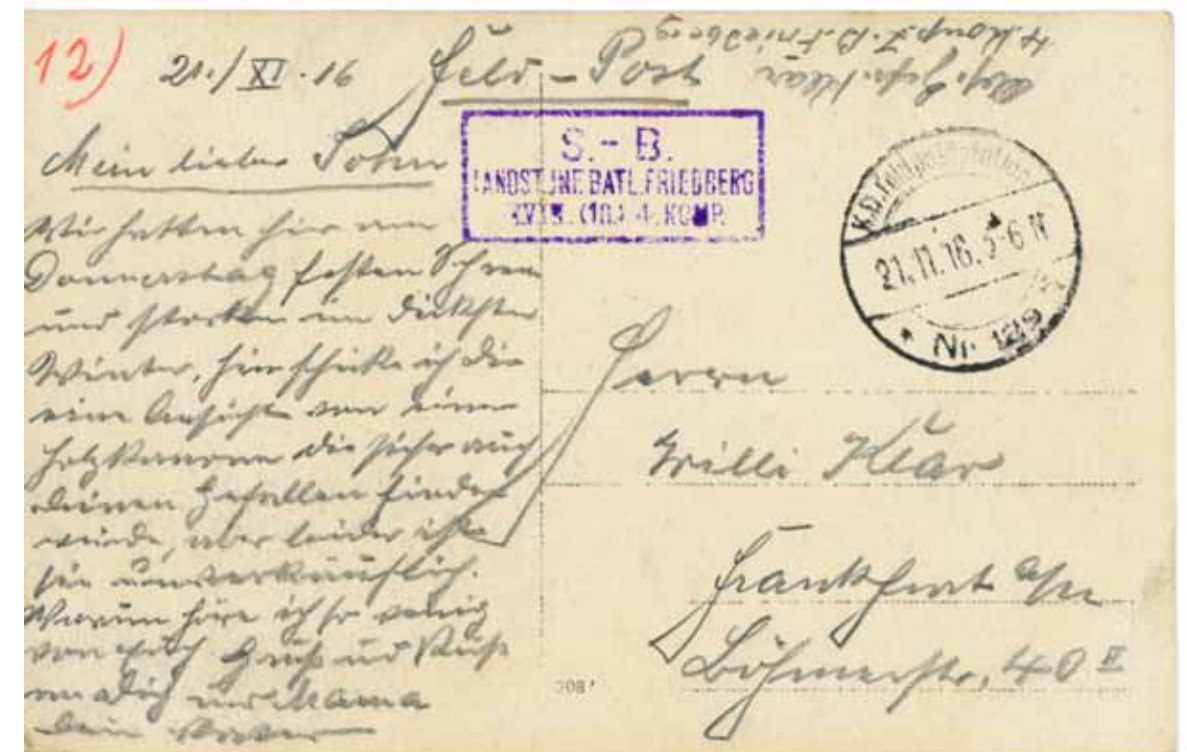 12) 21./XI.16 Feld-Post
Abs. Gefr. Klar
4. Komp. L. B. Friedberg
S.-B.
LANDST. INF. BATL. FRIEDBERG
XVIII. (10.) 4. KOMP.
K.D. Feldpoststation
21.11.16. 5-6 N
* Nr. 129 *
Mein lieber Sohn
Wir hatten hier am
Donnerstag festen Schnee
und stecken im dicksten
Winter, hier schicke ich Dir
eine Ansicht von einer
Holzkanone die sicher auch
Deinen Gefallen finden
würde, aber leider ist
sie unverkäuflich.
Warum höre ich so wenig
von Euch Gruß und Kuß
an Dich und Mama
Dein Vater
Herrn
Willi Klar
Frankfurt a/M
Böhmerstr. 40 II